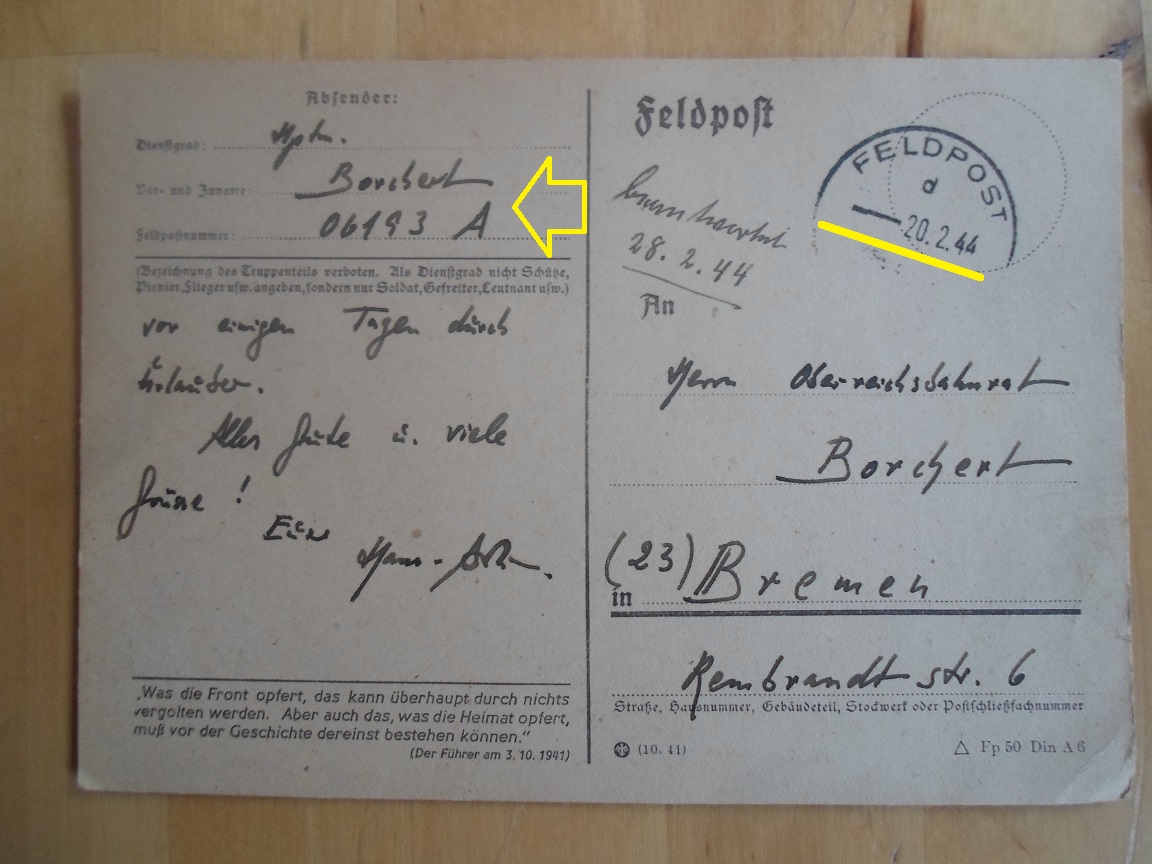 Absender:
Dienstgrad: Hptm.
Vor- und Zuname: Borchert
Feldpostnummer: 06193 A
(Bezeichnung des Truppenteils verboten. Als Dienstgrad nicht Schütze,
Pionier, Flieger usw. angeben, sondern nur Soldat, Gefreiter, Leutnant usw.)
vor einigen Tagen durch
Urlauber.
Alles Gute u. viele
Grüsse!
Euer
Hans-
„Was die Front opfert, das kann überhaupt durch nichts
vergolten werden. Aber auch das, was die Heimat opfert,
muß vor der Geschichte dereinst bestehen können.“
(Der Führer am 3. 10. 1941)
Feldpost
FELDPOST
d
20.2.44
beantwortet
28.2.44
An
Herrn Oberreichsbahnrat
Borchert
(23) Bremen
in
Rembrandtstr. 6
Straße, Hausnummer, Gebäudeteil, Stockwerk oder Postschließfachnummer
(10. 41)
△ Fp 50 Din A 6